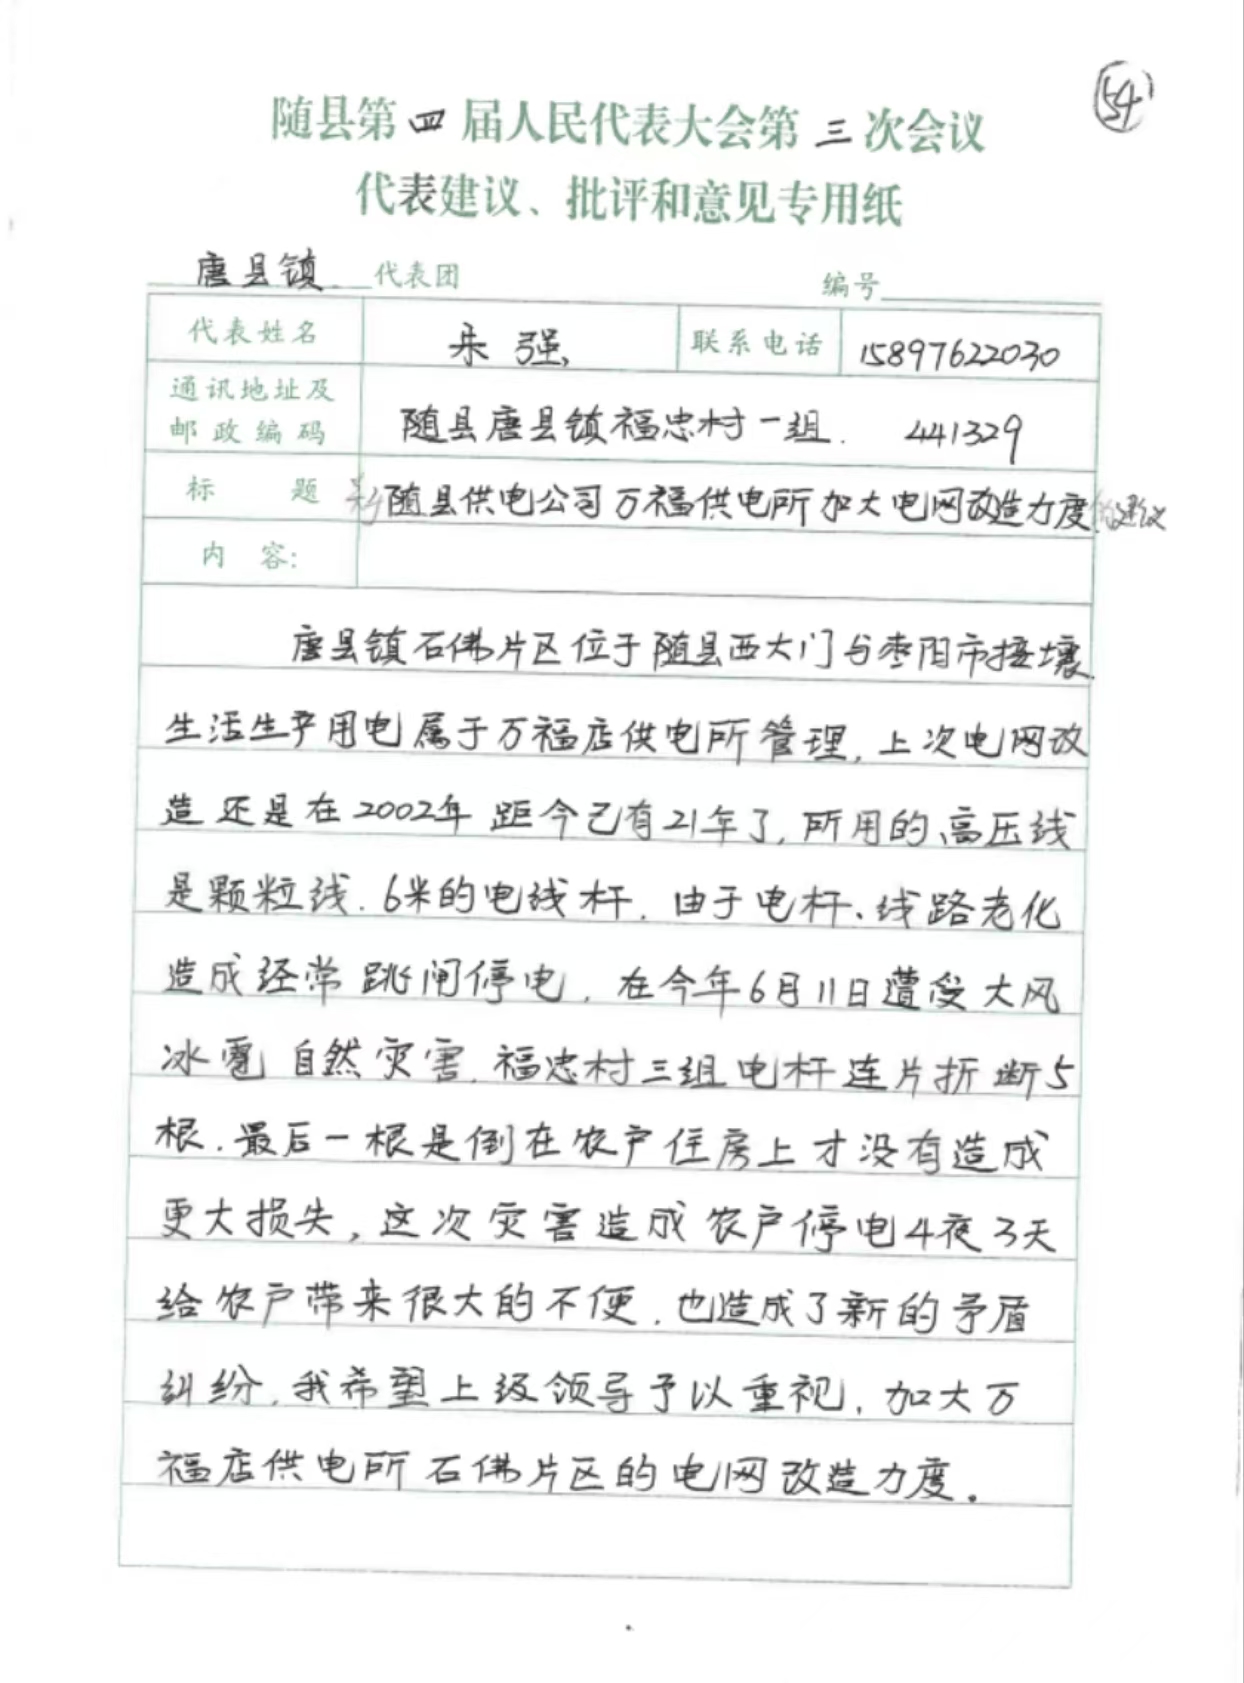 54
随县第四届人民代表大会第三次会议
代表建议、批评和意见专用纸
唐县镇 代表团 编号
代表姓名 朱强 联系电话 15897622030
通讯地址及邮政编码 随县唐县镇福忠村一组. 441329
标题 关于随县供电公司万福供电所加大电网改造力度的建议
内容:
唐县镇石佛片区位于随县西大门与枣阳市接壤.
生活生产用电属于万福店供电所管理,上次电网改
造还是在2002年 距今已有21年了,所用的高压线
是颗粒线.6米的电线杆.由于电杆、线路老化
造成经常跳闸停电.在今年6月11日遭受大风
冰雹自然灾害.福忠村三组电杆连片折断5
根.最后一根是倒在农户住房上才没有造成
更大损失,这次灾害造成农户停电4夜3天
给农户带来很大的不便.也造成了新的矛盾
纠纷.我希望上级领导予以重视,加大万
福店供电所石佛片区的电网改造力度.